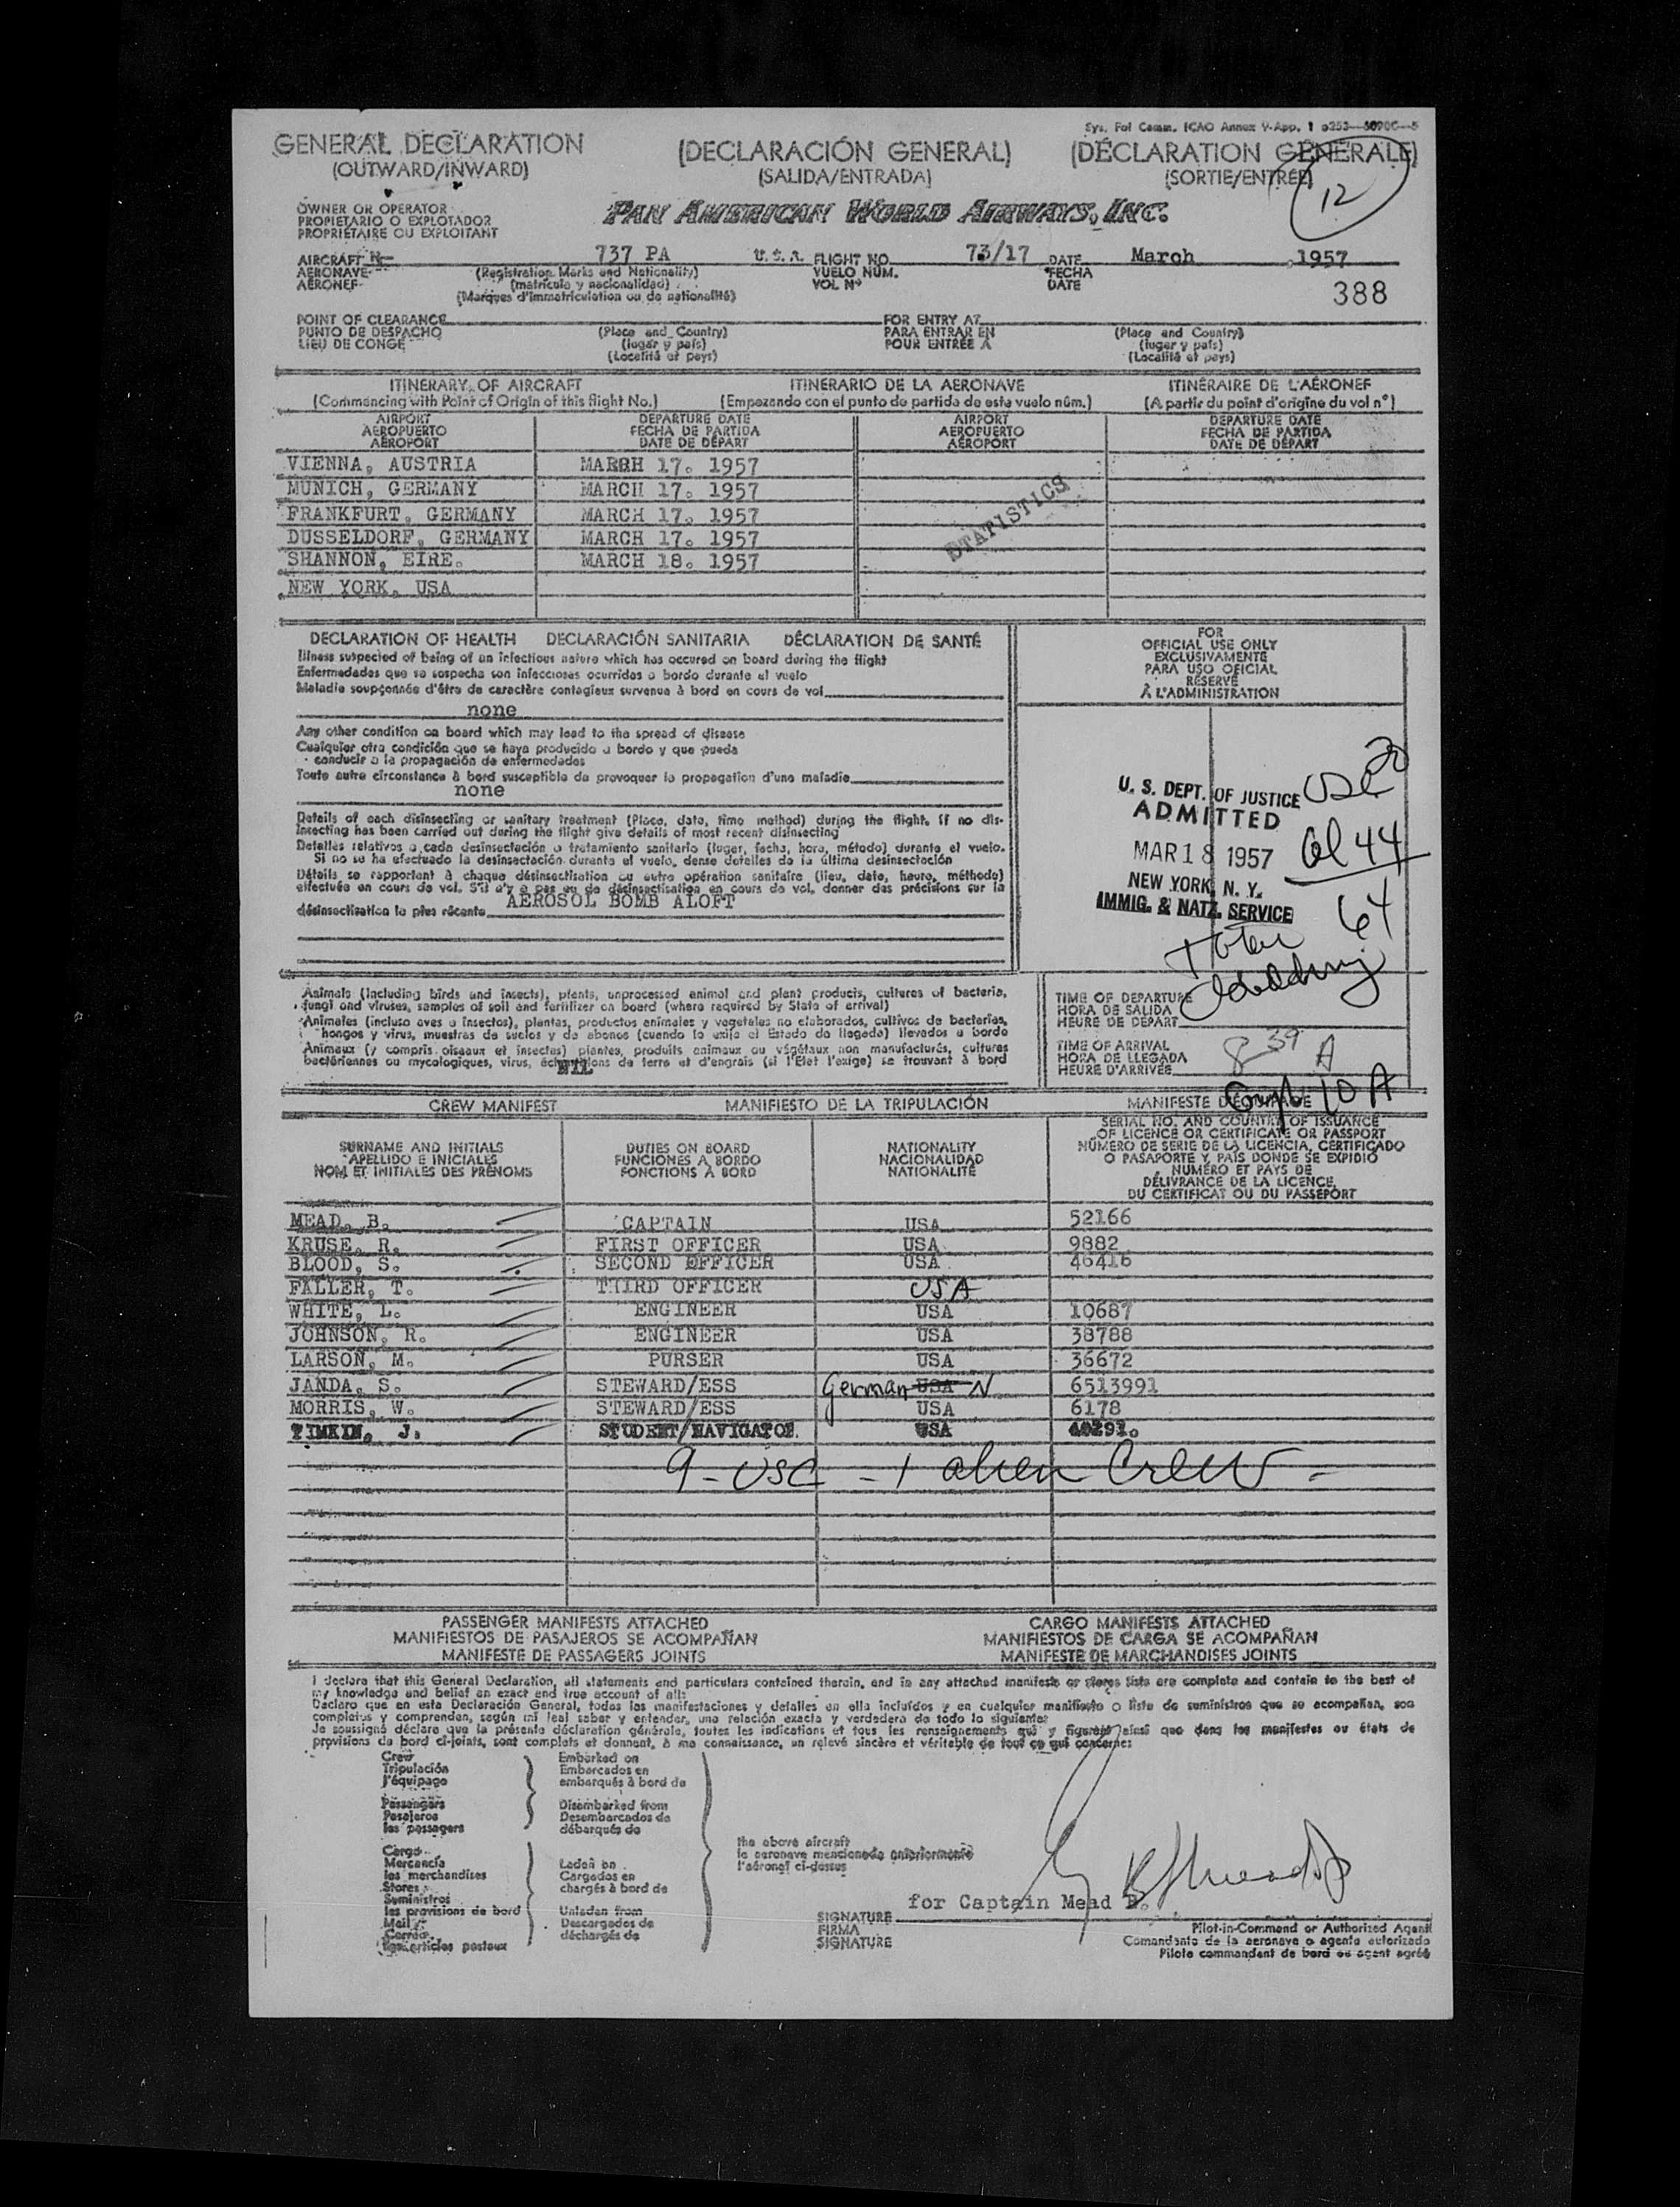 Sys. Fol Comm. ICAO Annex 9-App. 1
GENERAL DECLARATION (DECLARACIÓN GENERAL) (DÉCLARATION GÉNÉRALE)
(OUTWARD/INWARD) (SALIDA/ENTRADA) (SORTIE/ENTRÉE)
12
OWNER OR OPERATOR
PROPIETARIO O EXPLOTADOR
PROPRIÉTAIRE OU EXPLOITANT
PAN AMERICAN WORLD AIRWAYS, INC.
AIRCRAFT N- 737 PA U.S.A. FLIGHT NO. 73/17 DATE March ,1957
AERONAVE (Registration Marks and Nationality) VUELO NÚM. FECHA
AÉRONEF (matrícula y nacionalidad) VOL Nº DATE
(Marques d'immatriculation ou de nationalité)
388
POINT OF CLEARANCE FOR ENTRY AT
PUNTO DE DESPACHO (Place and Country) PARA ENTRAR EN (Place and Country)
LIEU DE CONGÉ (lugar y país) POUR ENTRÉE À (lugar y país)
(Localité et pays) (Localité et pays)
ITINERARY OF AIRCRAFT ITINERARIO DE LA AERONAVE ITINÉRAIRE DE L'AÉRONEF
(Commencing with Point of Origin of this flight No.) (Empezando con el punto de partida de este vuelo núm.) (A partir du point d'origine du vol nº)
AIRPORT DEPARTURE DATE AIRPORT DEPARTURE DATE
AEROPUERTO FECHA DE PARTIDA AEROPUERTO FECHA DE PARTIDA
AÉROPORT DATE DE DÉPART AÉROPORT DATE DE DÉPART
VIENNA, AUSTRIA MARCH 17. 1957
MUNICH, GERMANY MARCH 17. 1957
FRANKFURT, GERMANY MARCH 17. 1957
DUSSELDORF, GERMANY MARCH 17. 1957
SHANNON, EIRE. MARCH 18. 1957
NEW YORK, USA
STATISTICS
DECLARATION OF HEALTH DECLARACIÓN SANITARIA DÉCLARATION DE SANTÉ
Illness suspected of being of an infectious nature which has occured on board during the flight
Enfermedades que se sospecha son infecciosas ocurridas a bordo durante el vuelo
Maladie soupçonnée d'être de caractère contagieux survenue à bord en cours de vol
none
Any other condition on board which may lead to the spread of disease
Cualquier otra condición que se haya producido a bordo y que pueda
conducir a la propagación de enfermedades
Toute autre circonstance à bord susceptible de provoquer la propagation d'une maladie
none
Details of each disinsecting or sanitary treatment (Place, date, time method) during the flight. If no dis-
insecting has been carried out during the flight give details of most recent disinsecting
Detalles relativos a cada desinsectación o tratamiento sanitario (lugar, fecha, hora, método) durante el vuelo.
Si no se ha efectuado la desinsectación durante el vuelo, dense detalles de la última desinsectación
Détails se rapportant à chaque désinsectisation ou autre opération sanitaire (lieu, date, heure, méthode)
effectuée en cours de vol. S'il n'y a pas eu de désinsectisation en cours de vol, donner des précisions sur la
désinsectisation la plus récente AEROSOL BOMB ALOFT
FOR
OFFICIAL USE ONLY
EXCLUSIVAMENTE
PARA USO OFICIAL
RÉSERVÉ
À L'ADMINISTRATION
U. S. DEPT. OF JUSTICE
ADMITTED
MAR 18 1957
NEW YORK, N. Y.
IMMIG. & NATZ. SERVICE
USC 20
al 44
64
Total
Animals (including birds and insects), plants, unprocessed animal and plant products, cultures of bacteria,
fungi and viruses, samples of soil and fertilizer on board (where required by State of arrival)
Animales (incluso aves o insectos), plantas, productos animales y vegetales no elaborados, cultivos de bacterias,
hongos y virus, muestras de suelos y de abonos (cuando lo exija el Estado de llegada) llevados a bordo
Animaux (y compris oiseaux et insectes) plantes, produits animaux ou végétaux non manufacturés, cultures
bactériennes ou mycologiques, virus, échantillons de terre et d'engrais (si l'État l'exige) se trouvant à bord
NIL
TIME OF DEPARTURE
HORA DE SALIDA
HEURE DE DÉPART
TIME OF ARRIVAL
HORA DE LLEGADA
HEURE D'ARRIVÉE
8 39 A
10 A
CREW MANIFEST MANIFIESTO DE LA TRIPULACIÓN MANIFESTE D'ÉQUIPAGE
SURNAME AND INITIALS
APELLIDO E INICIALES
NOM ET INITIALES DES PRÉNOMS
DUTIES ON BOARD
FUNCIONES A BORDO
FONCTIONS À BORD
NATIONALITY
NACIONALIDAD
NATIONALITÉ
SERIAL NO. AND COUNTRY OF ISSUANCE
OF LICENCE OR CERTIFICATE OR PASSPORT
NÚMERO DE SERIE DE LA LICENCIA, CERTIFICADO
O PASAPORTE Y, PAÍS DONDE SE EXPIDIÓ
NUMÉRO ET PAYS DE
DÉLIVRANCE DE LA LICENCE,
DU CERTIFICAT OU DU PASSEPORT
MEAD, B. CAPTAIN USA 52166
KRUSE, R. FIRST OFFICER USA 9882
BLOOD, S. SECOND OFFICER USA 46416
FALLER, T. THIRD OFFICER USA
WHITE, L. ENGINEER USA 10687
JOHNSON, R. ENGINEER USA 38788
LARSON, M. PURSER USA 36672
JANDA, S. STEWARD/ESS German USA N 6513991
MORRIS, W. STEWARD/ESS USA 6178
TIMKIN, J. STUDENT/NAVIGATOR. USA 40291.
9 - USC - 1 alien Crew -
PASSENGER MANIFESTS ATTACHED CARGO MANIFESTS ATTACHED
MANIFIESTOS DE PASAJEROS SE ACOMPAÑAN MANIFIESTOS DE CARGA SE ACOMPAÑAN
MANIFESTE DE PASSAGERS JOINTS MANIFESTE DE MARCHANDISES JOINTS
I declare that this General Declaration, all statements and particulars contained therein, and in any attached manifests or stores lists are complete and contain to the best of
my knowledge and belief an exact and true account of all:
Declaro que en esta Declaración General, todas las manifestaciones y detalles en ella incluídos y en cualquier manifiesto o lista de suministros que se acompañan, son
completos y comprenden, según mi leal saber y entender, una relación exacta y verdadera de todo lo siguiente:
Je soussigné déclare que la présente déclaration générale, toutes les indications et tous les renseignements qui y figurent ainsi que dans les manifestes ou états de
provisions de bord ci-joints, sont complets et donnent, à ma connaissance, un relevé sincère et véritable de tout ce qui concerne:
Crew
Tripulación
l'équipage
Passengers
Pasajeros
les passagers
Cargo
Mercancía
les marchandises
Stores
Suministros
les provisions de bord
Mail
Correo
les articles postaux
Embarked on
Embarcados en
embarqués à bord de
Disembarked from
Desembarcados de
débarqués de
Laden on
Cargados en
chargés à bord de
Unladen from
Descargados de
déchargés de
the above aircraft
la aeronave mencionada anteriormente
l'aéronef ci-dessus
for Captain Mead B.
SIGNATURE
FIRMA
SIGNATURE
Pilot-in-Command or Authorized Agent
Comandante de la aeronave o agente autorizado
Pilote commandant de bord ou agent agréé